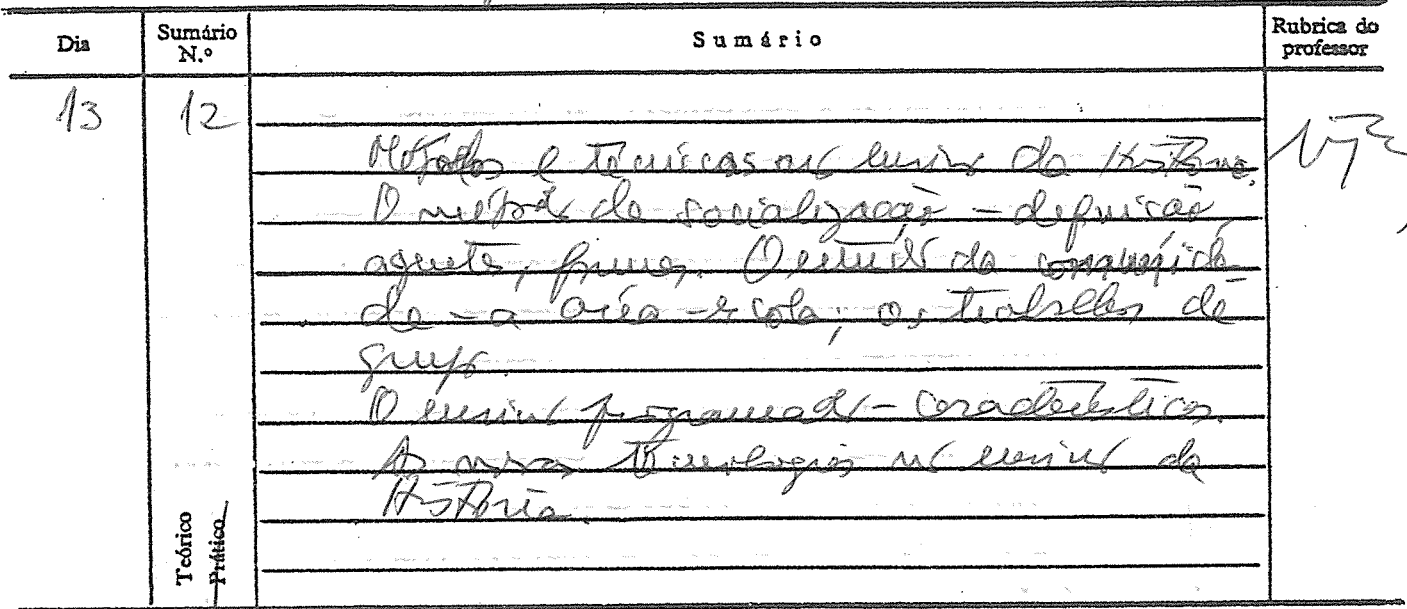 Dia Sumário N.º Sumário Rubrica do professor
13 12
Métodos e técnicas no ensino da História.
O método de socialização - definição,
agentes, formas. O estudo da comunida
de - a área-escola; os trabalhos de
grupo.
O ensino programado - características.
As novas tecnologias no ensino da
História.
Teórico
Prático